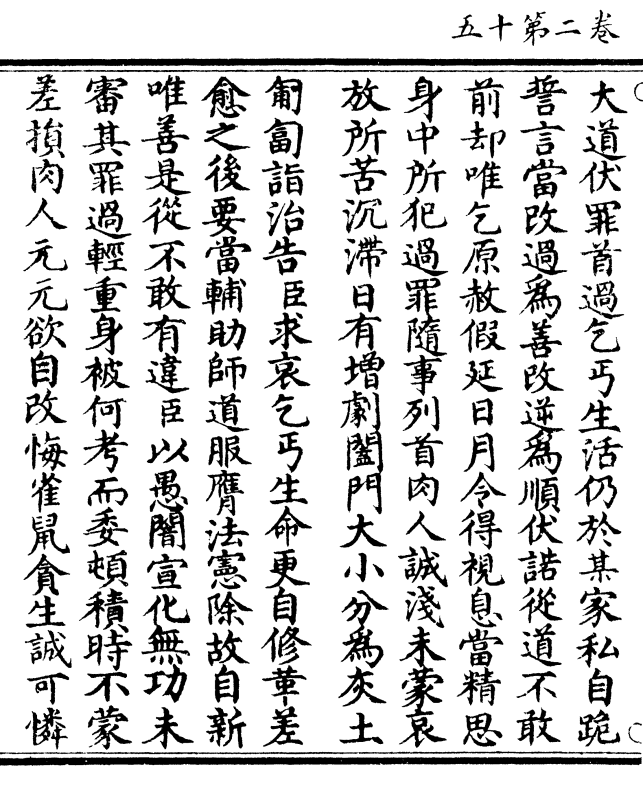 卷二第十五
大道伏罪首過乞丐生活仍於某家私自跪
誓言當改過爲善改逆爲順伏諾從道不敢
前却唯乞原赦假延日月令得視息當精思
身中所犯過罪隨事列首肉人誠淺未蒙哀
放所苦沉滯日有增劇闔門大小分爲灰土
匍匐詣治告臣求哀乞丐生命更自修革差
愈之後要當輔助師道服膺法憲除故自新
唯善是從不敢有違臣以愚闇宣化無功未
審其罪過輕重身被何考而委頓積時不蒙
差損肉人元元欲自改悔雀鼠貪生誠可憐